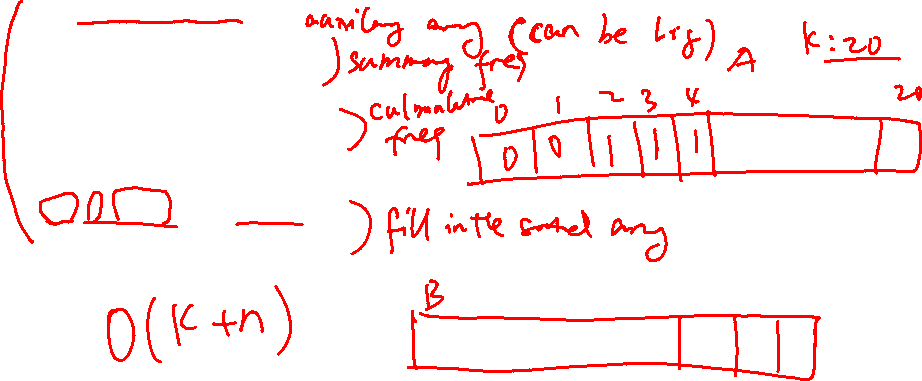 auxilary array (can be big)
) summary freq
A
K:20
) culmulative freq
0 1 2 3 4 20
0 0 1 1 1
) fill in the sorted array
O(K+n)
B